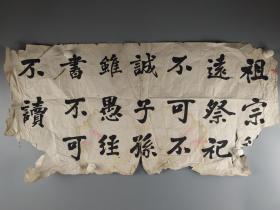 祖宗
遠祭祀
不可不
誠子孫
雖愚經
書不可
不讀